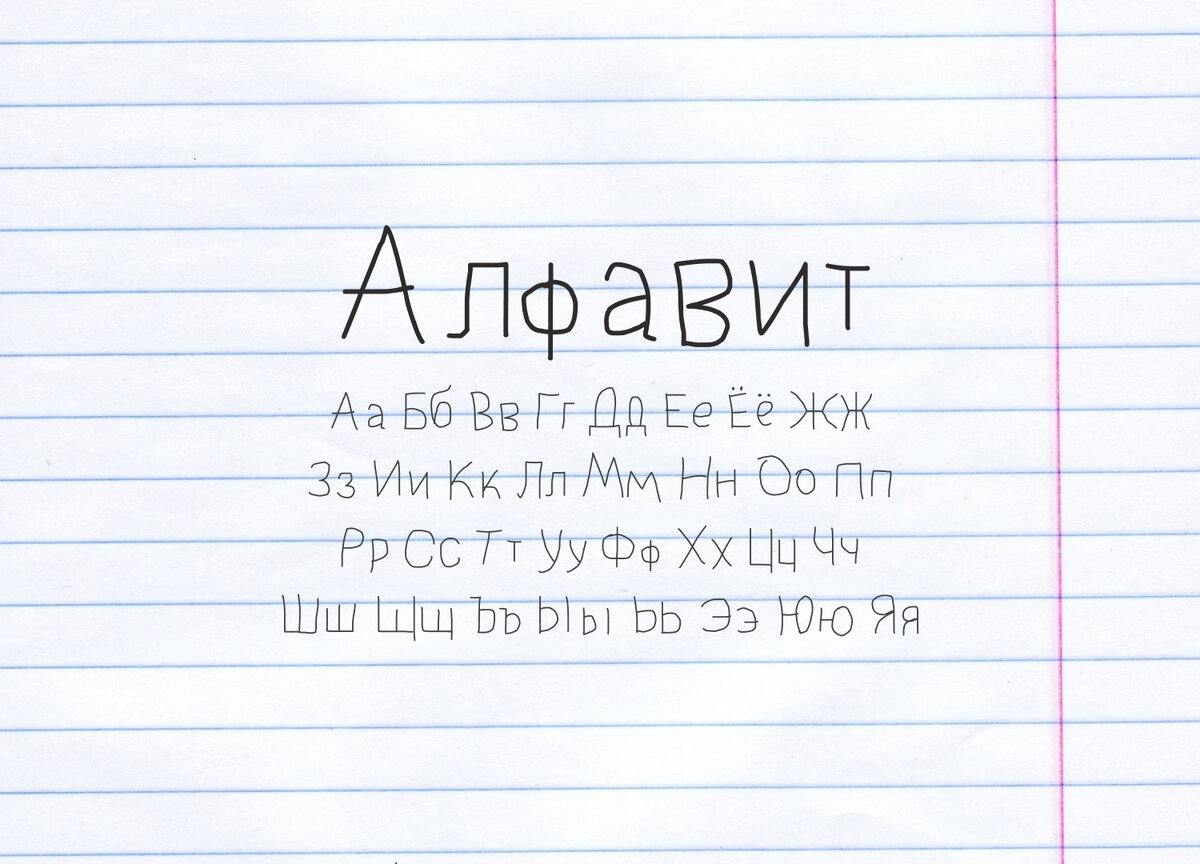 Алфавит
Аа Бб Вв Гг Дд Ее Ёё Жж
Зз Ии Кк Лл Мм Нн Оо Пп
Рр Сс Тт Уу Фф Хх Цц Чч
Шш Щщ Ъъ Ыы Ьь Ээ Юю Яя